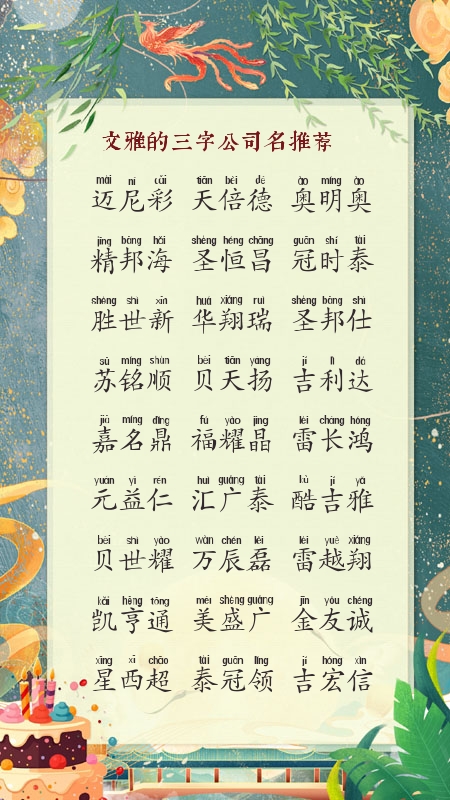 文雅的三字公司名推荐
mài ní cǎi tiān bèi dé ào míng ào
迈尼彩 天倍德 奥明奥
jīng bāng hǎi shèng héng chāng guān shí tài
精邦海 圣恒昌 冠时泰
shèng shì xīn huá xiáng ruì shèng bāng shì
胜世新 华翔瑞 圣邦仕
sū míng shùn bèi tiān yáng jí lì dá
苏铭顺 贝天扬 吉利达
jiā míng dǐng fú yào jīng léi cháng hóng
嘉名鼎 福耀晶 雷长鸿
yuán yì rén huì guǎng tài kù jí yǎ
元益仁 汇广泰 酷吉雅
bèi shì yào wàn chén lěi léi yuè xiáng
贝世耀 万辰磊 雷越翔
kǎi hēng tōng měi shèng guǎng jīn yǒu chéng
凯亨通 美盛广 金友诚
xīng xī chāo tài guān lǐng jí hóng xìn
星西超 泰冠领 吉宏信